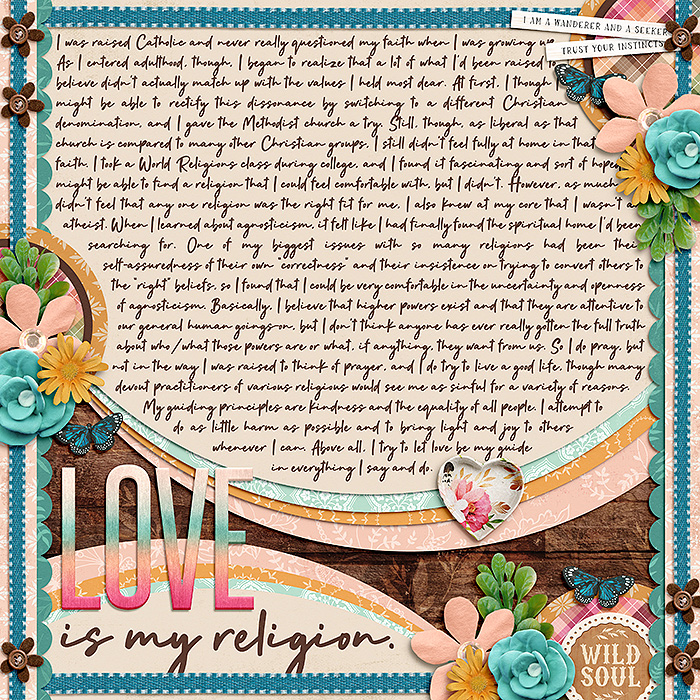 I AM A WANDERER AND A SEEKER
TRUST YOUR INSTINCTS
I was raised Catholic and never really questioned my faith when I was growing up.
As I entered adulthood, though, I began to realize that a lot of what I'd been raised to
believe didn't actually match up with the values I held most dear. At first, I though I
might be able to rectify this dissonance by switching to a different Christian
denomination, and I gave the Methodist church a try. Still, though, as liberal as that
church is compared to many other Christian groups, I still didn't feel fully at home in that
faith. I took a World Religions class during college, and I found it fascinating and sort of
might be able to find a religion that I could feel comfortable with, but I didn't. However, as much
didn't feel that any one religion was the right fit for me, I also knew at my core that I wasn't
atheist. When I learned about agnosticism, it felt like I had finally found the spiritual home I'd been
searching for. One of my biggest issues with so many religions had been
self-assuredness of their own "correctness" and their insistence on trying to convert others to
the "right" beliefs, so I found that I could be very comfortable in the uncertainty and openness
of agnosticism. Basically, I believe that higher powers exist and that they are attentive to
our general human goings-on, but I don't think anyone has ever really gotten the full truth
about who/what those powers are or what, if anything, they want from us. So I do pray, but
not in the way I was raised to think of prayer, and I do try to live a good life, though many
devout practitioners of various religious would see me as sinful for a variety of reasons.
My guiding principles are kindness and the equality of all people. I attempt to
do as little harm as possible and to bring light and joy to others
whenever I can. Above all, I try to let love be my guide
in everything I say and do.
LOVE
is my religion.
WILD
SOUL